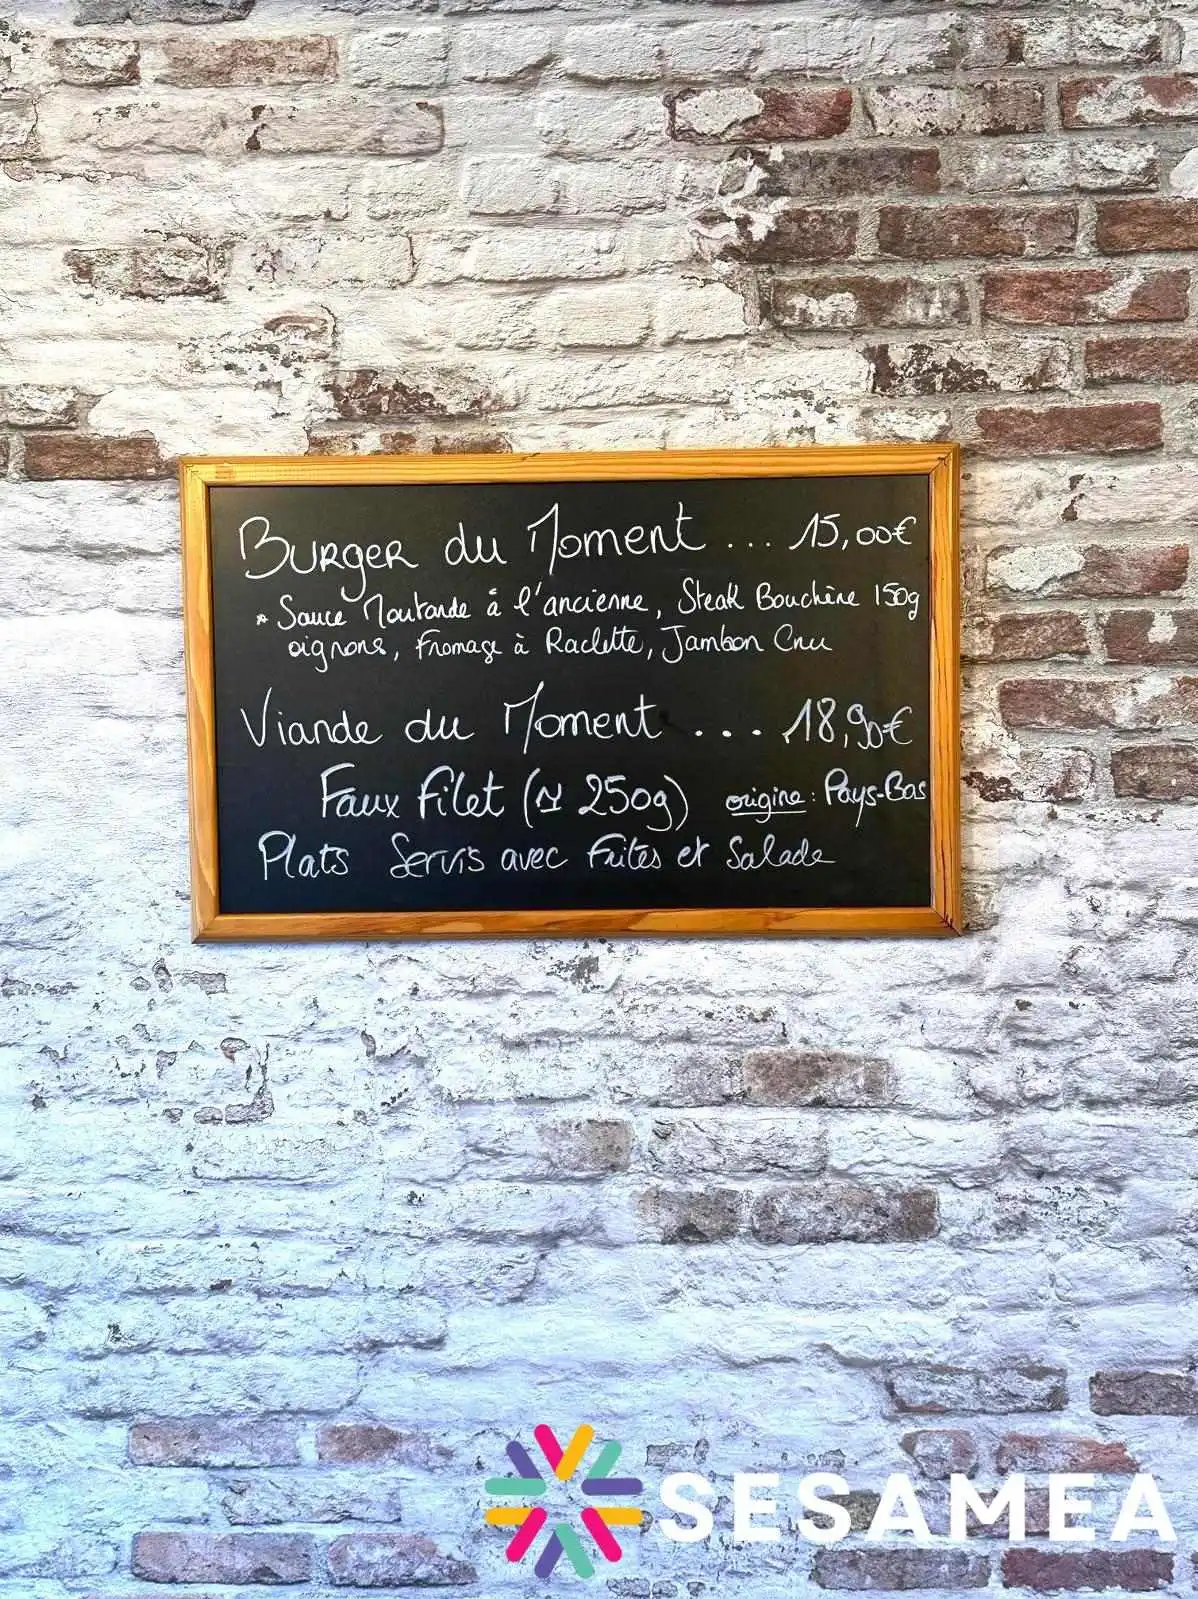 Burger du Moment ... 15,00€
* Sauce Moutarde à l'ancienne, Steak Bouchère 150g
oignons, Fromage à Raclette, Jambon Cru
Viande du Moment .... 18,90€
Faux Filet (≃ 250g) origine : Pays-Bas
Plats Servis avec Frites et Salade
SESAMEA